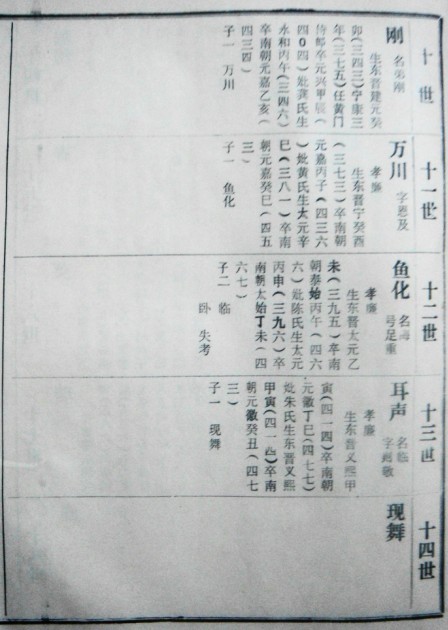 十世
刚 名弟刚
生东晋建元癸
卯(三四三)宁康三
年(三七五)任黄门
侍郎卒元兴甲辰(
四0四)妣龚氏生
永和丙午(三四六)
卒南朝元嘉乙亥(
四三四)
子一 万川
十一世
万川 字恩及
孝廉
生东晋宁癸酉
(三七三)卒南朝
元嘉丙子(四三六
)妣黄氏生太元辛
巳(三八一)卒南
朝元嘉癸巳(四五
三)
子一 鱼化
十二世
鱼化 名海
号足重
孝廉
生东晋太元乙
未(三九五)卒南
朝泰始丙午(四六
六)妣陈氏生太元
丙申(三九六)卒
南朝太始丁未(四
六七)
子二 临
卧 失考
十三世
耳声 名临
字
孝廉
生东晋义熙甲
寅(四一四)卒南朝
元徽丁巳(四七七)
妣朱氏生东晋义熙
甲寅(四一四)卒南
朝元徽癸丑(四七
三)
子一 现舞
十四世
现舞